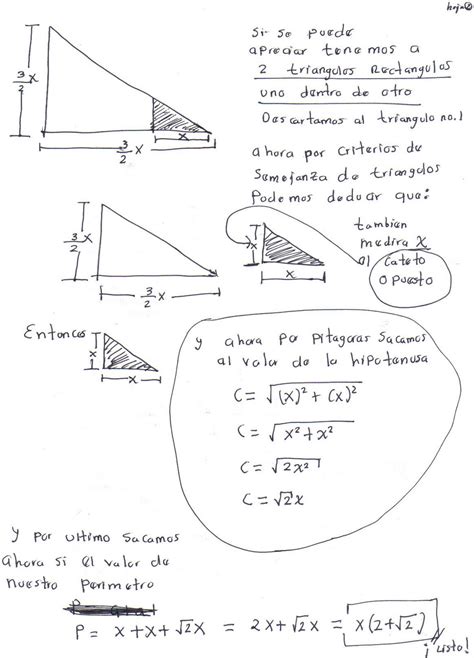 hoja②
Si se puede
apreciar tenemos a
2 triangulos Rectangulos
uno dentro de otro
Descartamos al triangulo no.1
3/2 x
x
3/2 x
ahora por criterios de
Semejanza de triangulos
Podemos deducir que:
tambien
medira x
el cateto
opuesto
3/2 x
3/2 x
x
x
Entonces
x
x
y ahora por Pitagoras Sacamos
al valor de la hipotenusa
C = √(x)² + (x)²
C = √x² + x²
C = √2x²
C = √2 x
y por ultimo Sacamos
ahora si el valor de
nuestro Perimetro
P = x + x + √2x = 2x + √2x = x(2+√2)
¡Listo!